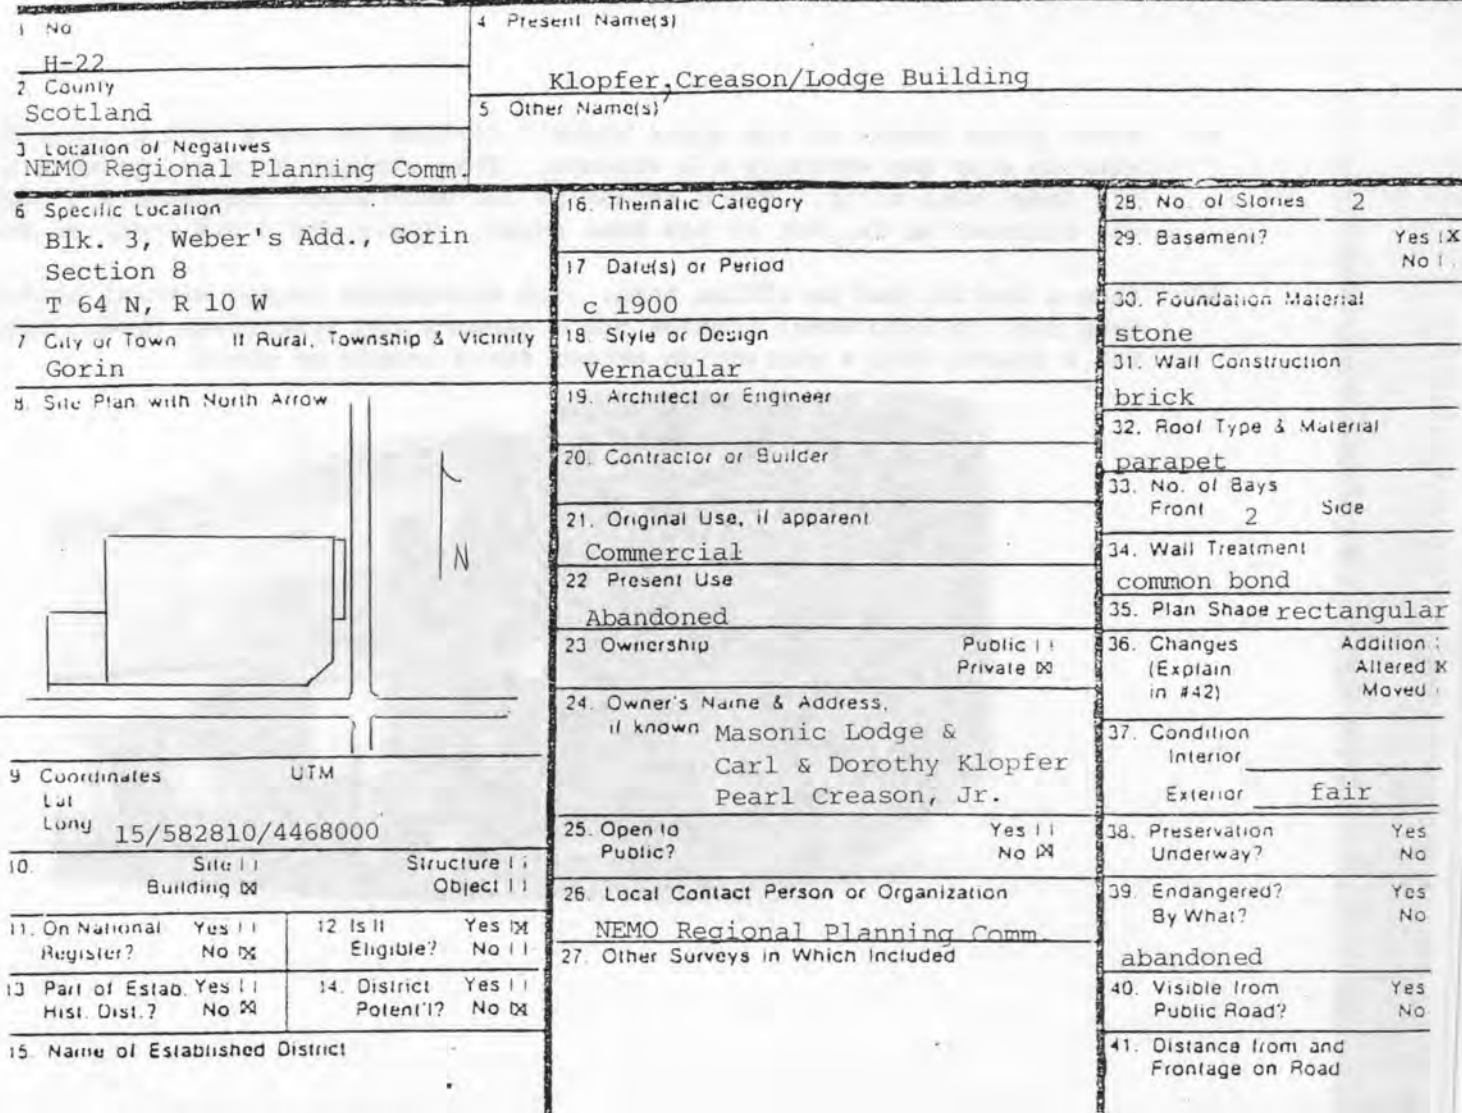 1 No
H-22
2. County
Scotland
3 Location of Negatives
NEMO Regional Planning Comm.
4 Present Name(s)
Klopfer, Creason/Lodge Building
5. Other Name(s)
6 Specific Location
Blk. 3, Weber's Add., Gorin
Section 8
T 64 N, R 10 W
7 City or Town If Rural, Township & Vicinity
Gorin
8. Site Plan with North Arrow
N
9 Coordinates UTM
Lat
Long 15/582810/4468000
10. Site [ ] Structure [ ]
Building [X] Object [ ]
11. On National Register? Yes [ ] No [X]
12 Is It Eligible? Yes [X] No [ ]
13 Part of Estab. Hist. Dist.? Yes [ ] No [X]
14. District Potent'l? Yes [ ] No [X]
15. Name of Established District
16. Thematic Category
17 Date(s) or Period
c 1900
18. Style or Design
Vernacular
19. Architect or Engineer
20. Contractor or Builder
21. Original Use, if apparent
Commercial
22 Present Use
Abandoned
23 Ownership Public [ ]
Private [X]
24. Owner's Name & Address,
if known Masonic Lodge &
Carl & Dorothy Klopfer
Pearl Creason, Jr.
25. Open to Yes [ ]
Public? No [X]
26. Local Contact Person or Organization
NEMO Regional Planning Comm.
27. Other Surveys in Which Included
28. No. of Stories 2
29. Basement? Yes [X
No [
30. Foundation Material
stone
31. Wall Construction
brick
32. Roof Type & Material
parapet
33. No. of Bays
Front 2 Side
34. Wall Treatment
common bond
35. Plan Shape rectangular
36. Changes Addition
(Explain Altered X
in #42) Moved
37. Condition
Interior
Exterior fair
38. Preservation Yes
Underway? No
39. Endangered? Yes
By What? No
abandoned
40. Visible from Yes
Public Road? No
41. Distance from and
Frontage on Road